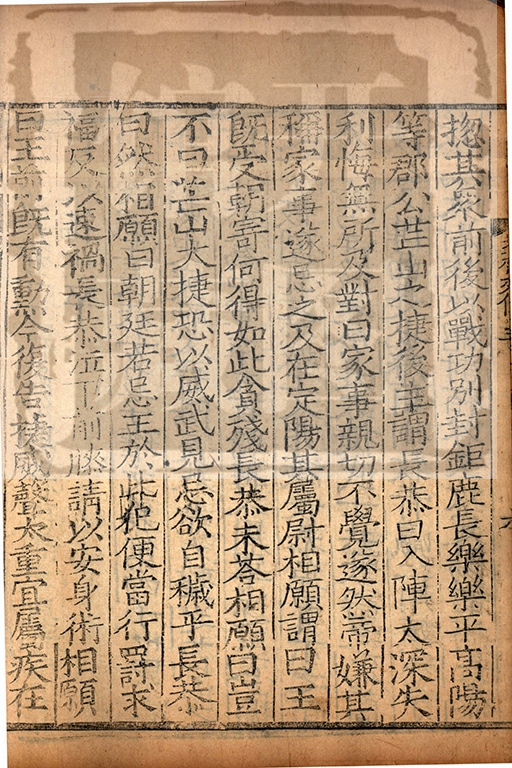 揔其衆前後以戰功別封鉅鹿長樂樂平高陽
等郡公芒山之捷後主謂長恭曰入陣太深失
利悔無所及對曰家事親切不覺遂然帝嫌其
稱家事遂忌之及在定陽其屬尉相願謂曰王
旣受朝寄何得如此貪殘長恭未荅相願曰豈
不曰芒山大捷恐以威武見忌欲自穢乎長恭
曰然相願曰朝廷若忌王於此犯便當行罰求
福反以速禍長恭泣下前膝請以安身術相願
曰王前旣有勲今復告捷威聲太重宜屬疾在